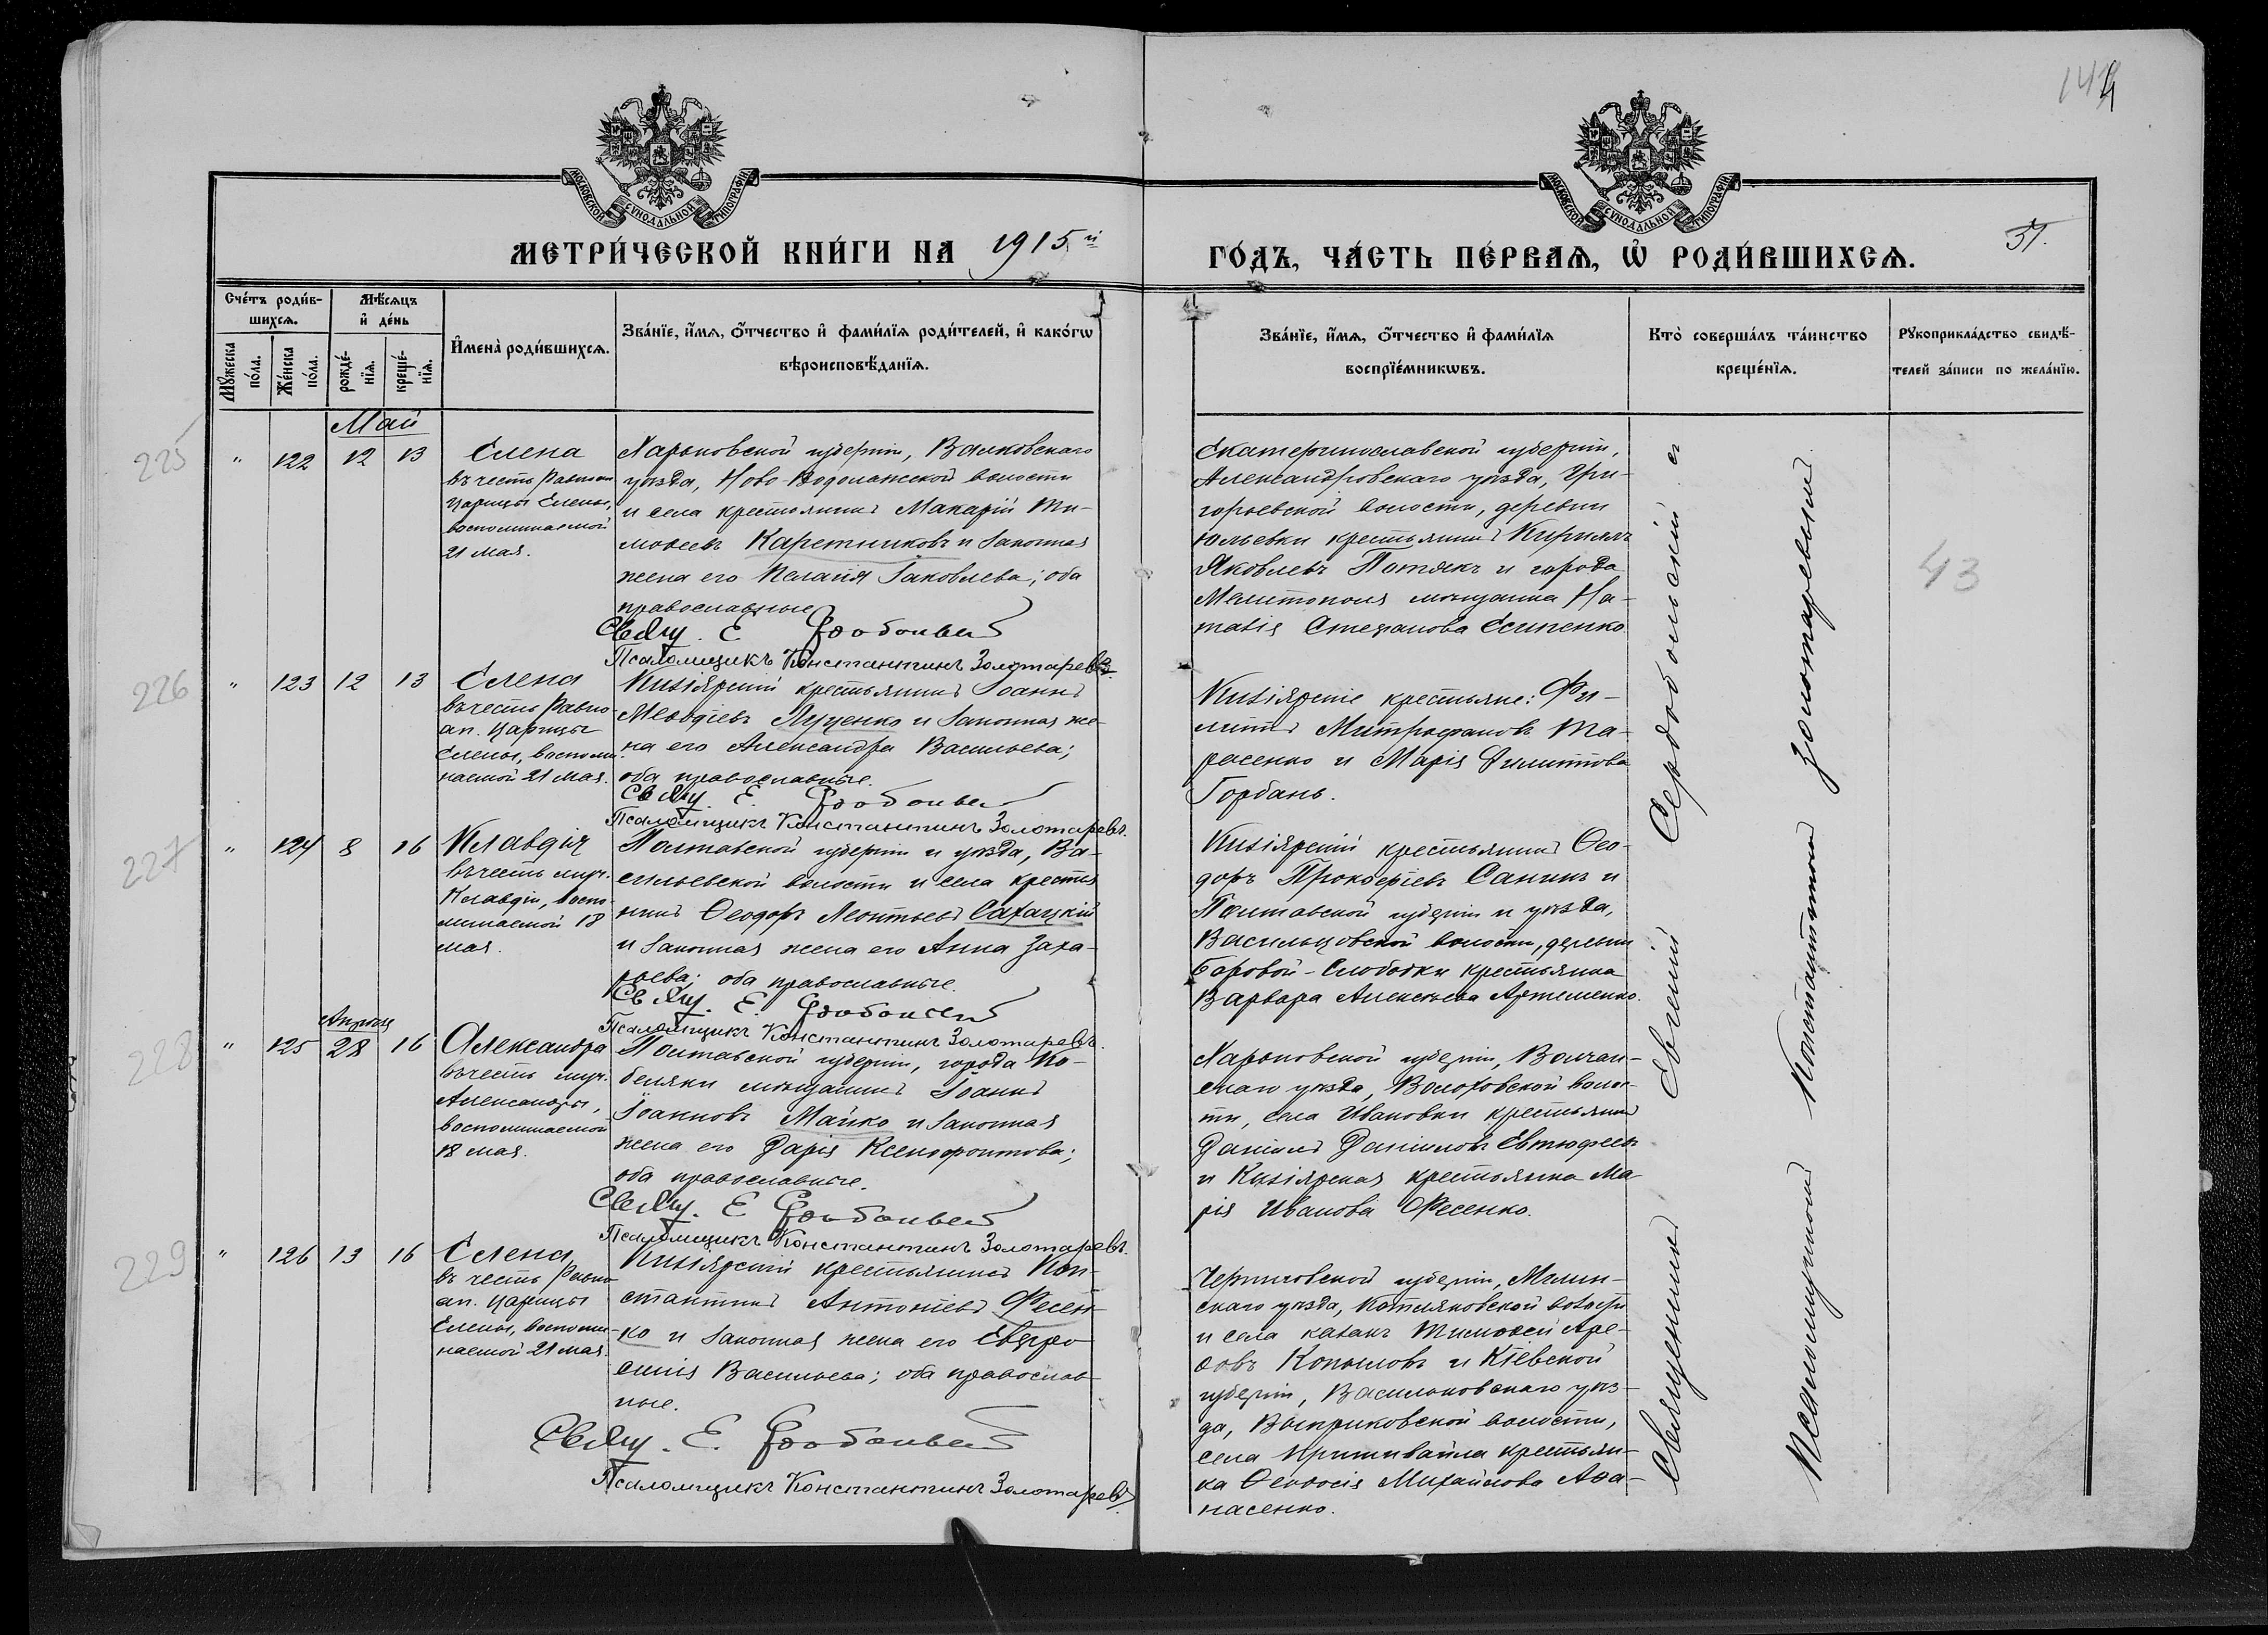 144
МОСКОВСКОЙ СУНОДАЛЬНОЙ ТИПОГРАФІИ
МОСКОВСКОЙ СУНОДАЛЬНОЙ ТИПОГРАФІИ
МЕТРИ́ЧЕСКОЙ КНИ́ГИ НА 1915й
ГО́ДЪ, ЧА́СТЬ ПЕ́РВАѦ, Ѡ҆ РОДИ́ВШИХСѦ.
51.
Сче́тъ роди́в-
шихсѧ.
Мꙋ́жеска по́ла.
Же́нска по́ла.
Мѣ́сѧцъ
и҆ де́нь
рожде́-
нїѧ.
креще́-
нїѧ.
И҆мена̀ роди́вшихсѧ.
Зва́нїе, и҆́мѧ, ѻ҆́тчество и҆ фами́лїѧ роди́телей, и҆ како́гѡ
вѣроисповѣ́данїѧ.
Зва́нїе, и҆́мѧ, ѻ҆́тчество и҆ фами́лїѧ
воспрїе́мникѡвъ.
Кто̀ соверша́лъ та́инство
креще́нїѧ.
Рꙋкоприкла́дство свидѣ́-
телей за́писи по жела́нїю.
Май
225 " 122 12 13
Елена
въ честь Равноап
Царицы Елены,
воспоминаемой
21 мая.
Харьковской губерніи, Валковскаго
уѣзда, Ново-Водолажской волости
и села крестьянинъ Макарій Ти-
моѳеевъ Каретниковъ и законная
жена его Пелагія Іаковлева; оба
православные
Свящ. Е. Сердобольскій
Псаломщикъ Константинъ Золотаревъ
Екатеринославской губерніи,
Александровскаго уѣзда, Гри-
горьевской волости, деревни
Юльевки крестьянинъ Кириллъ
Яковлевъ Потякъ и города
Мелитополя мѣщанка На-
талія Степанова Есипенко
43
226 " 123 12 13
Елена
въ честь Равно-
ап. Царицы
Елены, воспоми-
наемой 21 мая.
Кизіярскій крестьянинъ Іоаннъ
Меѳодіевъ Луценко и законная же-
на его Александра Васильева;
оба православные.
Свящ. Е. Сердобольскій
Псаломщикъ Константинъ Золотаревъ.
Кизіярскіе крестьяне: Фи-
липпъ Митрофановъ Та-
расенко и Марія Филиппова
Горбань.
227 " 124 8 16
Клавдія
въ честь муч.
Клавдіи, воспо-
минаемой 18
мая.
Полтавской губерніи и уѣзда, Ва-
сильевской волости и села крестья
нинъ Ѳеодоръ Леонтьевъ Сахацкій
и законная жена его Анна Заха-
рьева; оба православные.
Свящ. Е. Сердобольскій
Псаломщикъ Константинъ Золотаревъ.
Кизіярскій крестьянинъ Ѳео-
доръ Прокофіевъ Санинъ и
Полтавской губерніи и уѣзда,
Васильцовской волости, деревни
Боровой-Слободки крестьянка
Варвара Алексѣева Артеменко.
Апрѣль
228 " 125 28 16
Александра
въ честь муч.
Александры,
воспоминаемой
18 мая.
Полтавской губерніи, города Ко-
беляки мѣщанинъ Іоаннъ
Іоанновъ Майко и законная
жена его Дарія Ксенофонтова;
оба православные.
Свящ. Е. Сердобольскій
Псаломщикъ Константинъ Золотаревъ.
Харьковской губерніи, Волчан-
скаго уѣзда, Волоховской волос-
ти, села Ивановки крестьянинъ
Даніилъ Даніиловъ Евтюфеевъ
и Кизіярская крестьянка Ма
рія Иванова Фесенко.
229 " 126 13 16
Елена
въ честь Равно
ап. Царицы
Елены, воспоми-
наемой 21 мая.
Кизіярскій крестьянинъ Кон-
стантинъ Антоніевъ Фесен-
ко и законная жена его Евфро
синія Васильева; оба православ
ные.
Свящ. Е. Сердобольскій
Псаломщикъ Константинъ Золотаревъ.
Черниговской губерніи, Мглин-
скаго уѣзда, Котляковской волости
и села казакъ Тимоѳей Аре-
ѳовъ Копыловъ и Кіевской
губерніи, Васильковскаго уѣз-
да, волости,
села крестьян-
ка Ѳеодосія Михайлова Аѳа-
насенко.
Священникъ Евгеній Сердобольскій съ
Псаломщикомъ Константиномъ Золотаревымъ.